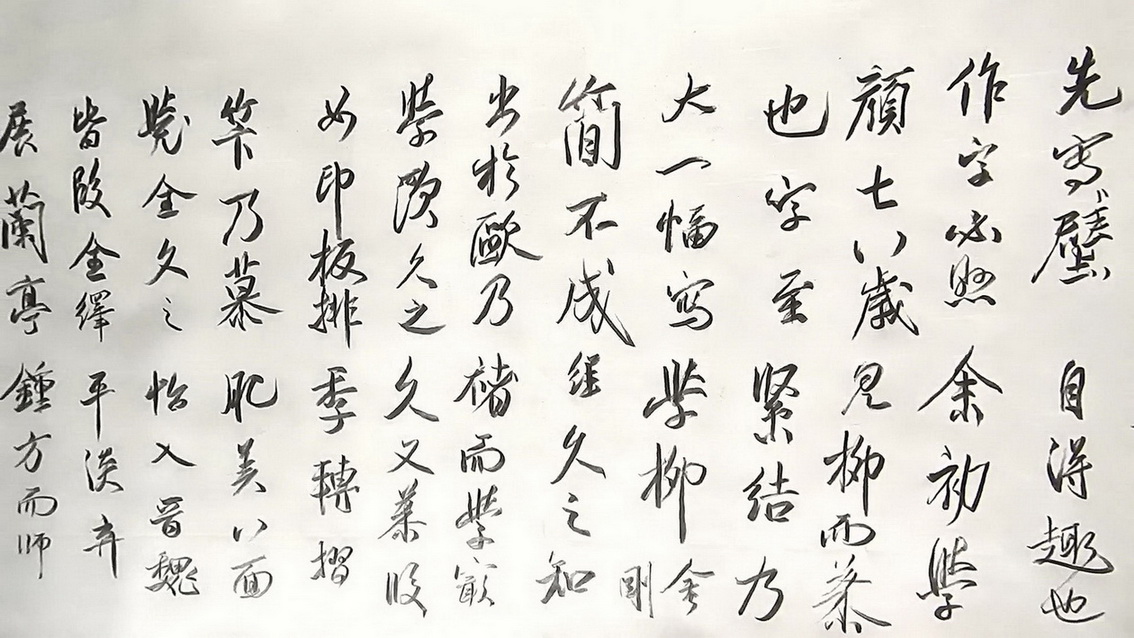 先寫壁自得趣也
作字必照余初學
顏七八歲見柳而慕
也字至緊結乃
大一幅寫學柳金剛
簡不成經久之知
出於歐乃褚而學最
學歐久之久又慕段
如印板排季轉摺
笇乃慕肥美八面
覺全久之帖入晉魏
皆段全繹平淡弃
展蘭亭鍾方而師